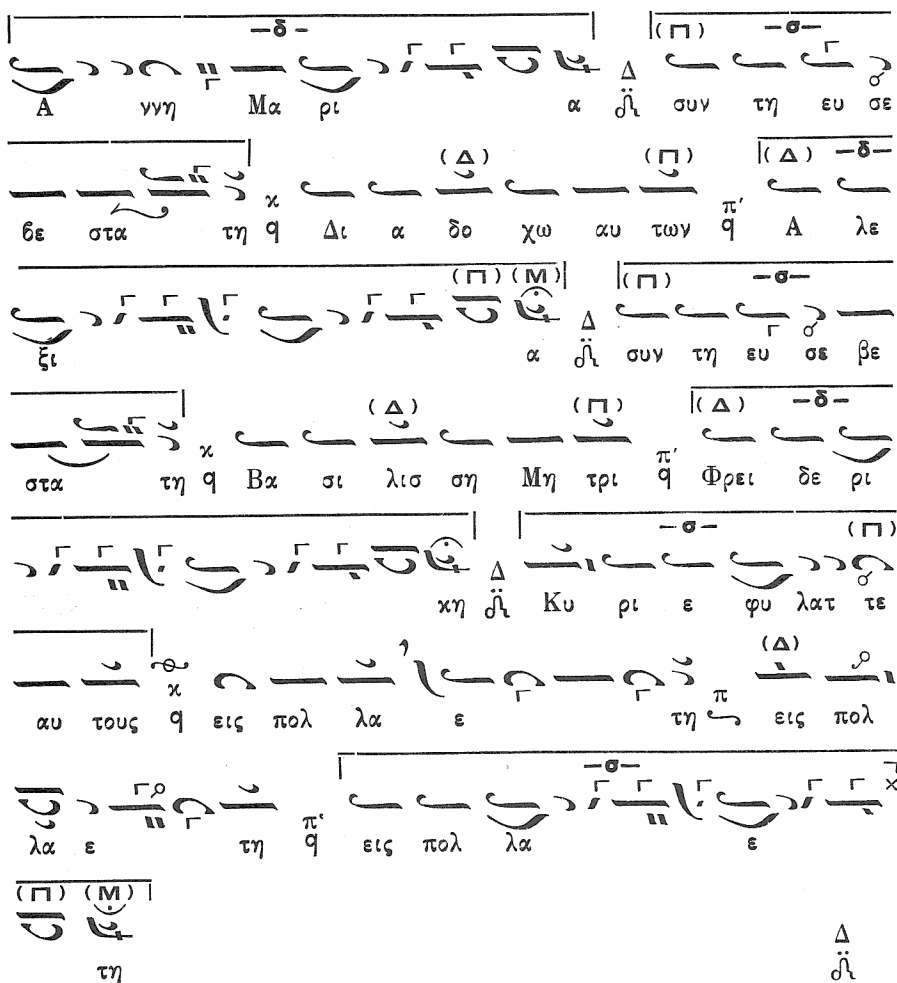 Α ννη Μα ρι α Δ συν τη ευ σε
βε στα τη κ q Δι α δο χω αυ των π' q Α λε
ξι α Δ συν τη ευ σε βε
στα τη κ q Βα σι λισ ση Μη τρι π' q Φρει δε ρι
κη Δ Κυ ρι ε φυ λατ τε
αυ τους κ q εις πολ λα ε τη π εις πολ
λα ε τη π' q εις πολ λα ε
τη Δ